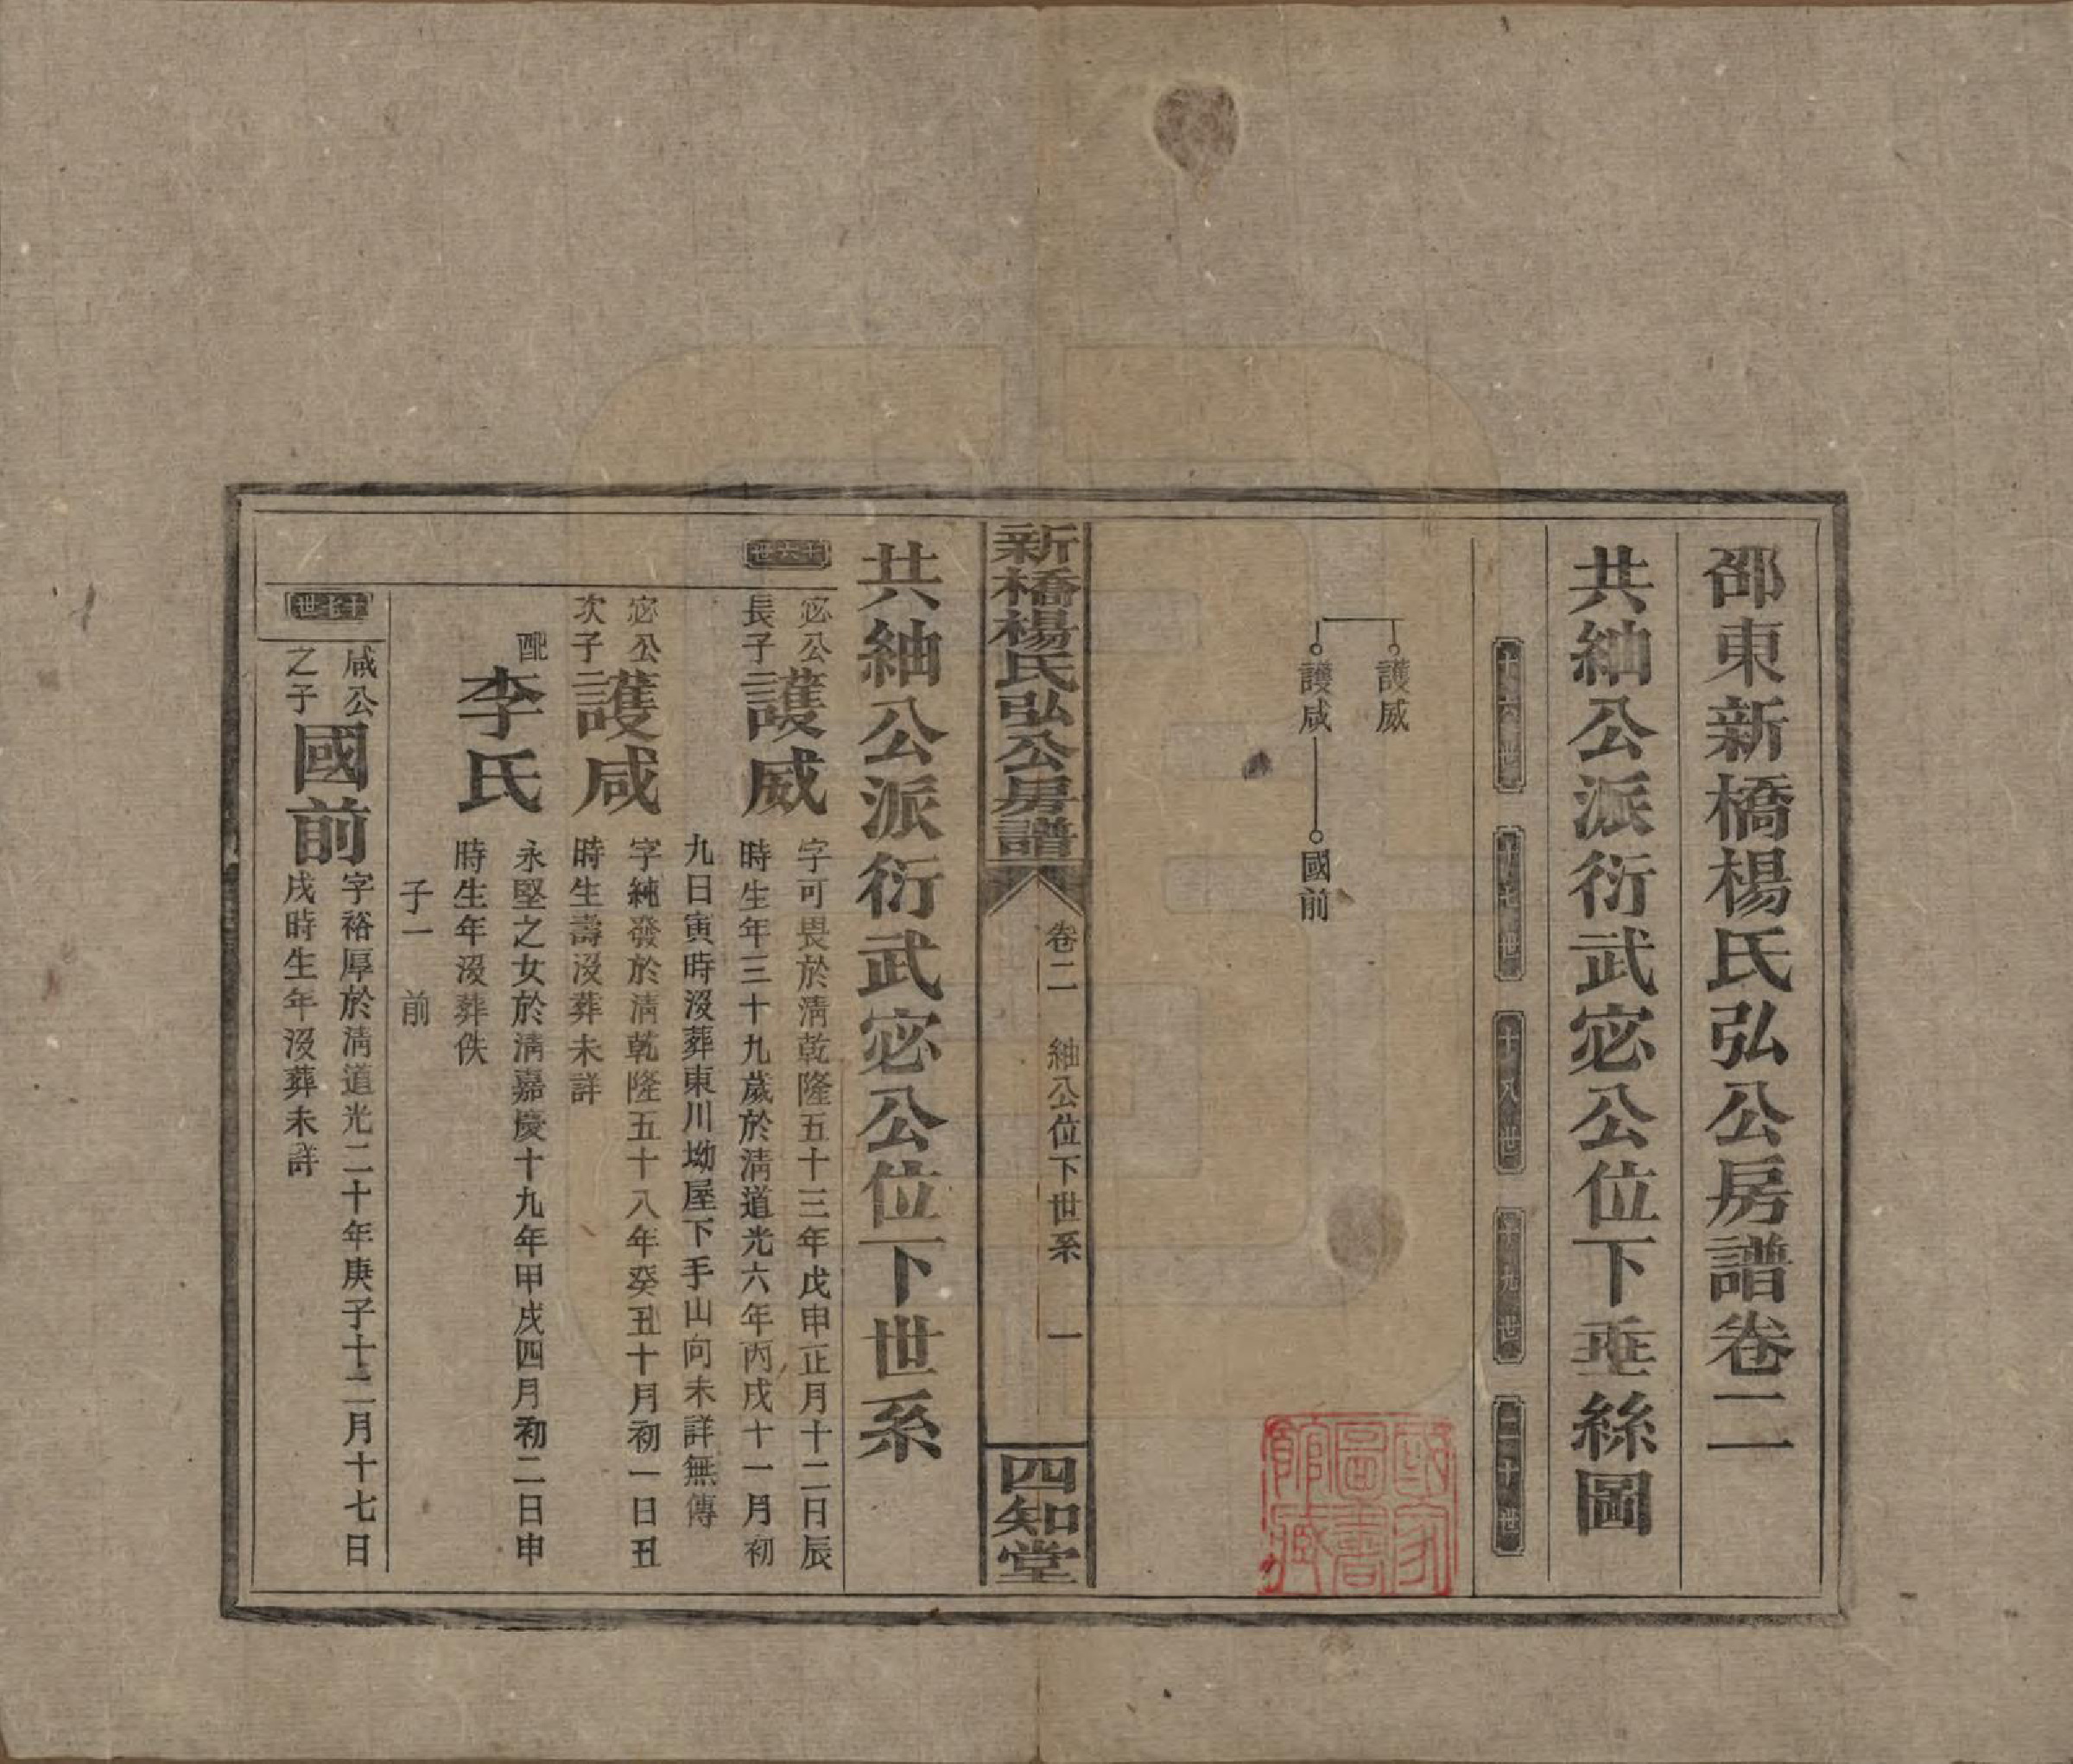 邵東新橋楊氏弘公房譜卷二
共紬公派衍武宓公位下垂絲圖
十六世
十七世
十八世
十九世
二十世
護威
護咸
國前
國家圖書館藏
新橋楊氏弘公房譜
卷二
紬公位下世系
一
四知堂
共紬公派衍武宓公位下世系
十六世
宓公
長子
護威
字可畏於淸乾隆五十三年戊申正月十二日辰
時生年三十九歲於淸道光六年丙戌十一月初
九日寅時沒葬東川坳屋下手山向未詳無傳
宓公
次子
護咸
字純發於淸乾隆五十八年癸丑十月初一日丑
時生壽沒葬未詳
配
李氏
永堅之女於淸嘉慶十九年甲戌四月初二日申
時生年沒葬佚
子一 前
十七世
咸公
之子
國前
字裕厚於淸道光二十年庚子十二月十七日
戌時生年沒葬未詳